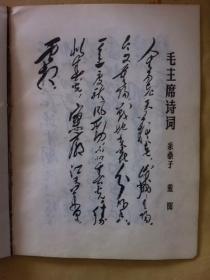 毛主席诗词
采桑子 重阳
人生易老天难老岁岁重阳
今又重阳战地黄花分外香
一年一度秋风劲不似春光胜
似春光寥廓江天
万里霜